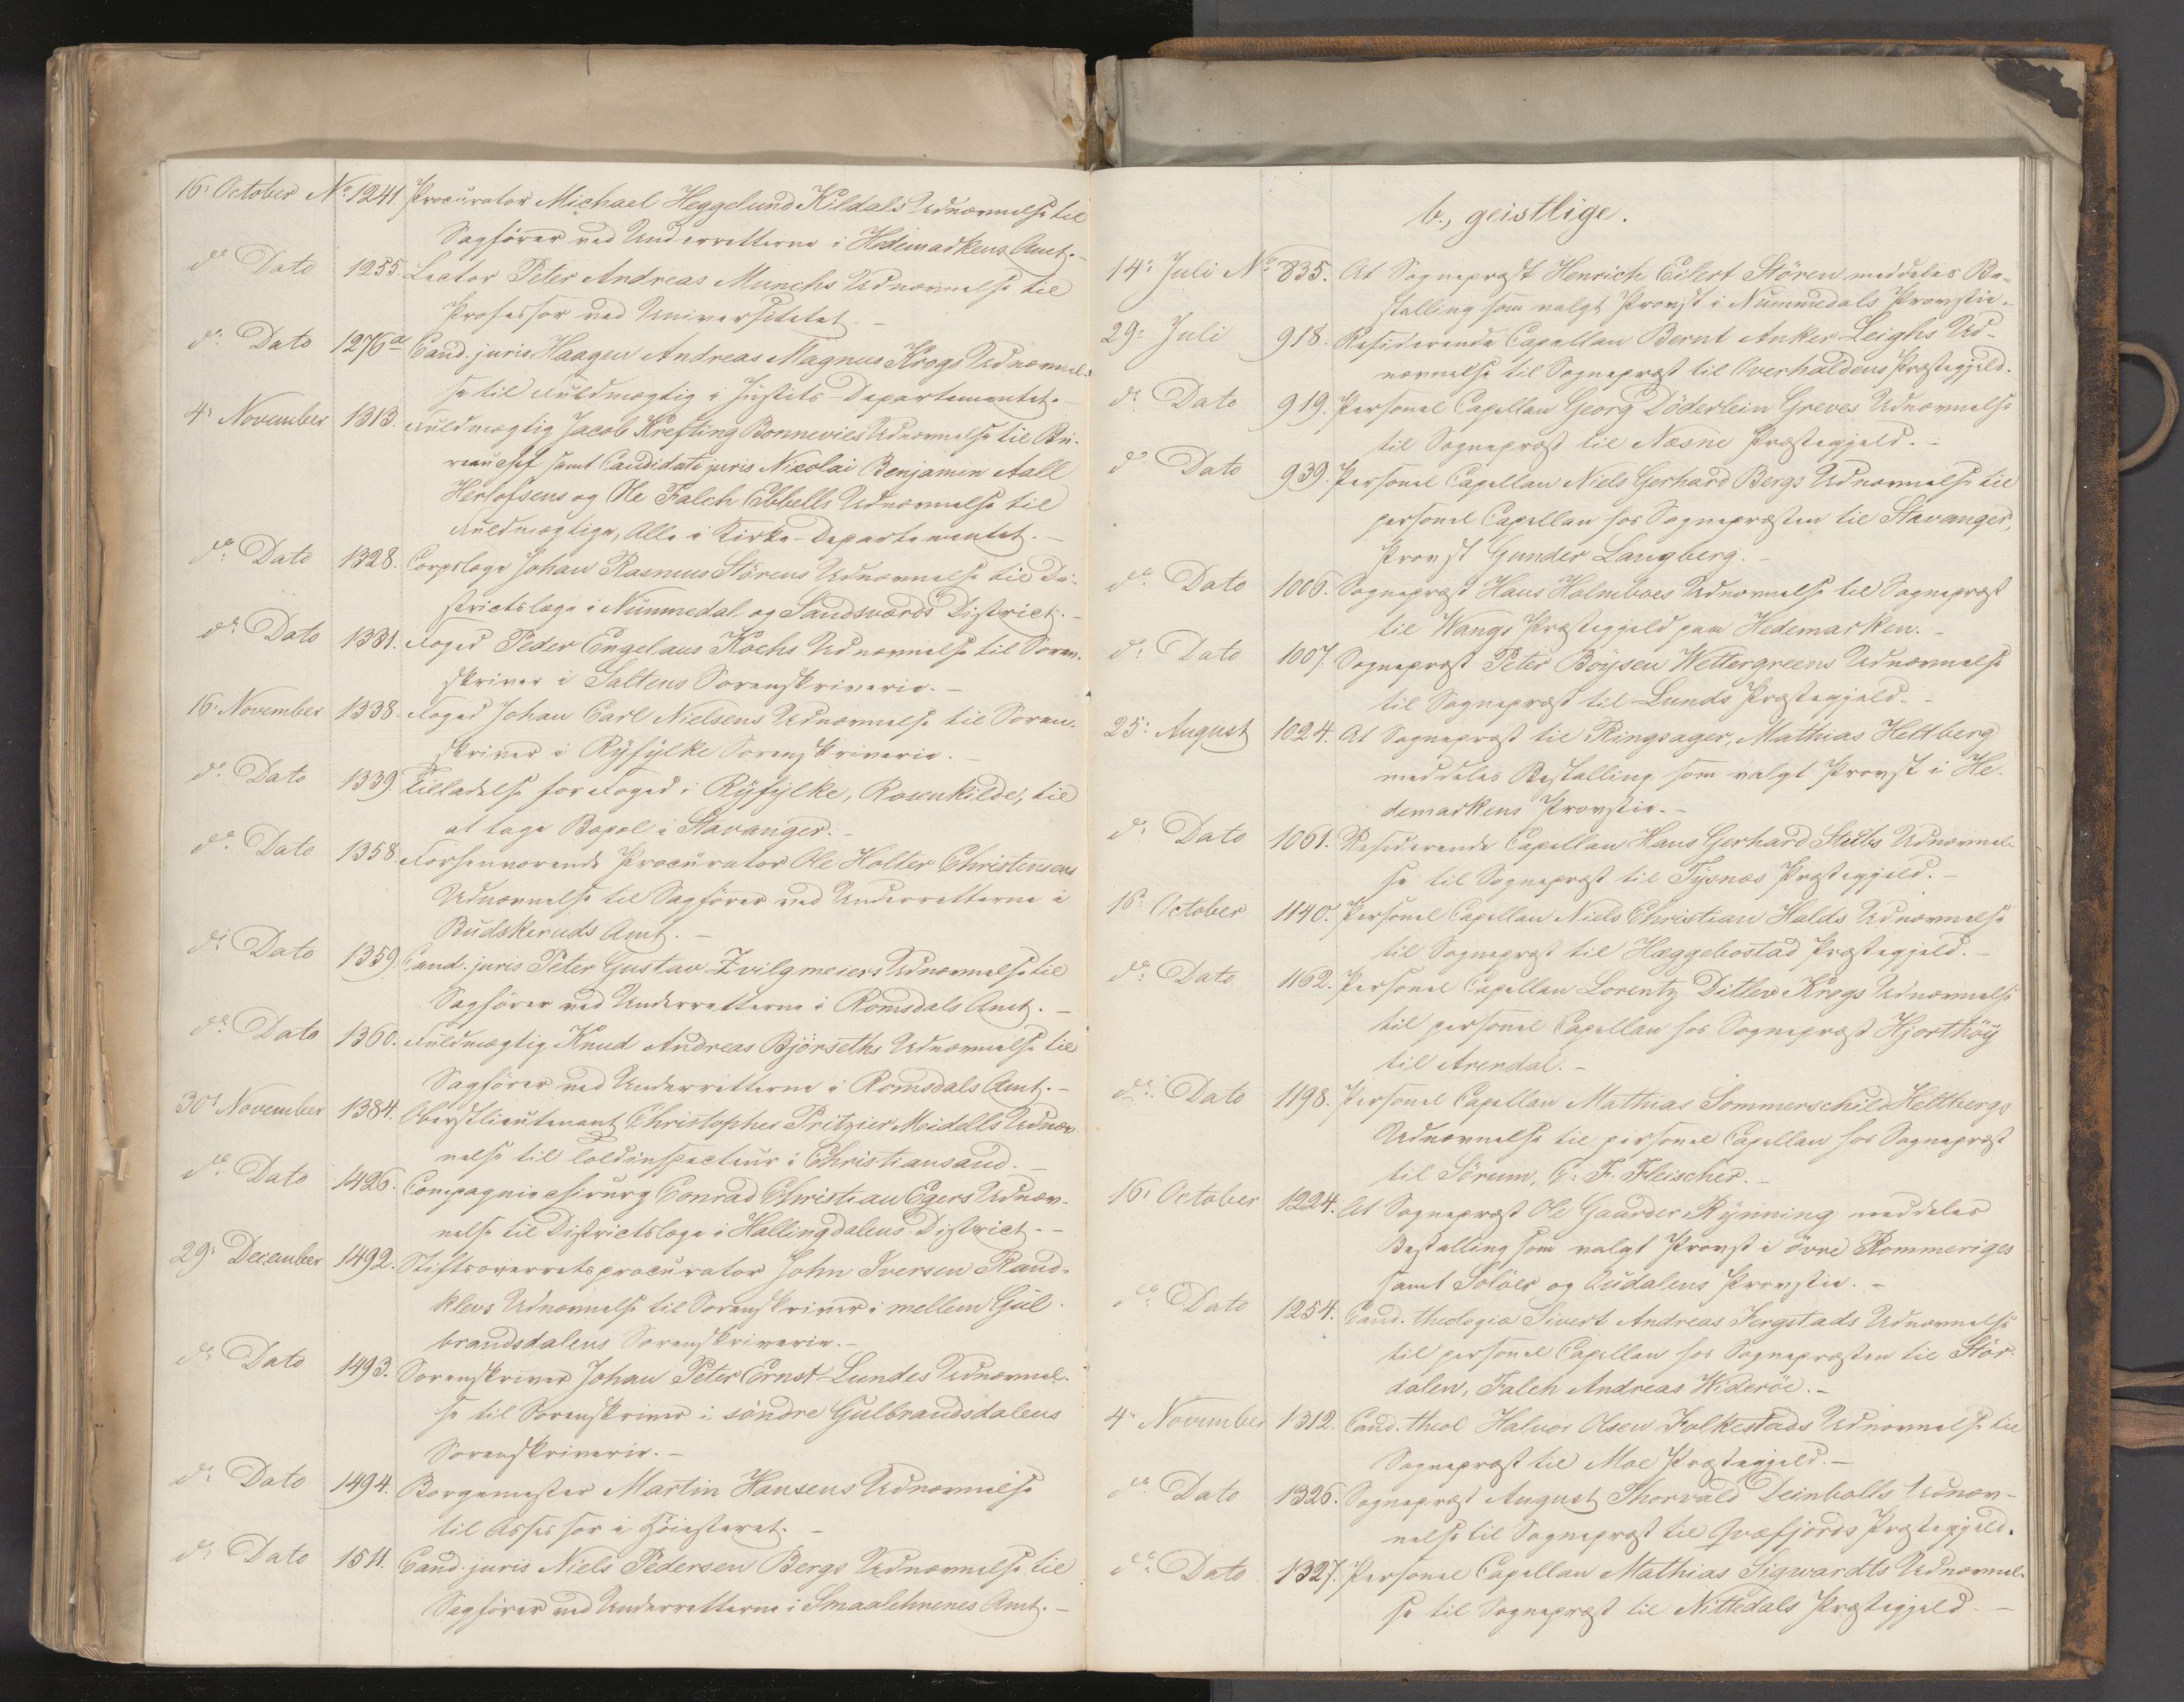 16: October No. 1241. Procurator Michael Heggelund Kildals Udnævnelse til
Sagförer ved Underretterne i Hedemarkens Amt.-
do Dato 1255. Lector Peter Andreas Munchs Udnævnelse til
Professor ved Universitetet.-
do Dato 1276a Cand. juris Haagen Andreas Magnus Krogs Udnævnel-
se til Fuldmægtig i Justits-Departementet.-
4: November 1313. Fuldmægtig Jacob Krefting Bonnevies Udnævnelse til Bü-
reauchef samt Candidati juris Nicolai Benjamin Aall
Herlofsens og Ole Falch Ebbells Udnævnelse til
Fuldmægtige, Alle i Kirke-Departementet.-
do Dato 1328. Corpslæge Johan Rasmus Störens Udnævnelse til Di-
strictslæge i Nummedal og Sandsværds District.-
do Dato 1331. Foged Peder Engelaus Kochs Udnævnelse til Soren-
skriver i Saltens Sorenskriverie.-
16: November 1338. Foged Johan Carl Nielsens Udnævnelse til Soren-
skriver i Ryfylke Sorenskriverie.-
do Dato 1339 Tilladelse for Foged i Ryfylke, Rosenkilde, til
at tage Bopæl i Stavanger.-
do Dato 1358. Forhenværende Procurator Ole Holter Christensens
Udnævnelse til Sagförer ved Underretterne i
Budskeruds Amt.-
do Dato 1359. Cand. juris Peter Gustav Zvilgmeiers Udnævnelse til
Sagförer ved Underretterne i Romsdals Amt.-
do Dato 1360. Fuldmægtig Knud Andreas Björseths Udnævnelse til
Sagförer ved Underretterne i Romsdals Amt.-
30: November 1384. Oberstlieutenant Christopher Pritzier Meidells Udnæv-
nelse til Toldinspecteur i Christiansand.-
do Dato 1426. Compagniechirurg Conrad Christian Egers Udnæv-
nelse til Districtslæge i Hallingdalens District.-
29: December 1492. Stiftsoverretsprocurator John Iversen Rand-
klevs Udnævnelse til Sorenskriver i mellem Gul-
brandsdalens Sorenskriverie.-
do Dato 1493. Sorenskriver Johan Peter Ernst Lundes Udnævnel-
se til Sorenskriver i söndre Gulbrandsdalens
Sorenskriverie.-
do Dato 1494. Borgemester Martin Hansens Udnævnelse
til Assessor i Höiesteret.-
do Dato 1511. Cand. juris Niels Pedersen Bergs Udnævnelse til
Sagförer ved Underretterne i Smaalehnenes Amt.-
b., geistlige.
14: Juli No. 835. At Sognepræst Henrich Eilert Stören meddeles Be-
stalling som valgt Provst i Nummedals Provstie.-
29: Juli 918. Residerende Capellan Bernt Anker Leighs Ud-
nævnelse til Sognepræst til Overhaldens Præstegjeld.
do Dato 919. Personel Capellan Georg Döderlein Greves Udnævnelse
til Sognepræst til Næsne Præstegjeld.-
do Dato 939. Personel Capellan Niels Gerhard Bergs Udnævnelse til
personel Capellan hos Sognepræsten til Stavanger,
Provst Gunder Langberg.-
do Dato 1006. Sognepræst Hans Holmboes Udnævnelse til Sognepræst
til Wangs Præstegjeld paa Hedemarken.-
do Dato 1007. Sognepræst Peter Boysen Wettergreens Udnævnelse
til Sognepræst til Lunds Præstegjeld.-
25: August 1024. At Sognepræst til Ringsager, Mathias Heltberg
meddeles Bestalling som valgt Provst i He-
demarkens Provstie.-
do Dato 1061. Residerende Capellan Hans Gerhard Stubs Udnævnel-
se til Sognepræst til Tysnæs Præstegjeld.-
16: October 1140. Personel Capellan Niels Christian Halds Udnævnelse
til Sognepræst til Hæggebostad Præstegjeld.-
do Dato 1162. Personel Capellan Lorentz Ditlev Krogs Udnævnelse
til personel Capellan hos Sognepræst Hjorthöy
til Arendal.-
do Dato 1198. Personel Capellan Mathias Sommerschild Heltbergs
Udnævnelse til personel Capellan hos Sognepræst
til Sörum, C. F. Fleischer.-
16: October 1224. At Sognepræst Ole Gaarder Rynning meddeles
Bestalling som valgt Provst i övre Rommeriges
samt Solöer og Oudalens Provstie.-
do Dato 1254. Cand. theologiæ Sivert Andreas Jergstads Udnævnelse
til personel Capellan hos Sognepræsten til Stör-
dalen, Falch Andreas Wideröe.-
4: November 1312. Cand. theol Halvor Olsen Folkestads Udnævnelse til
Sognepræst til Moe Præstegjeld.-
do Dato 1326. Sognepræst August Thorvald Deinbolls Udnæv-
nelse til Sognepræst til Qvæfjords Præstegjeld.
do Dato 1327. Personel Capellan Mathias Sigwardts Udnævnel-
se til Sognepræst til Nittedals Præstegjeld.-